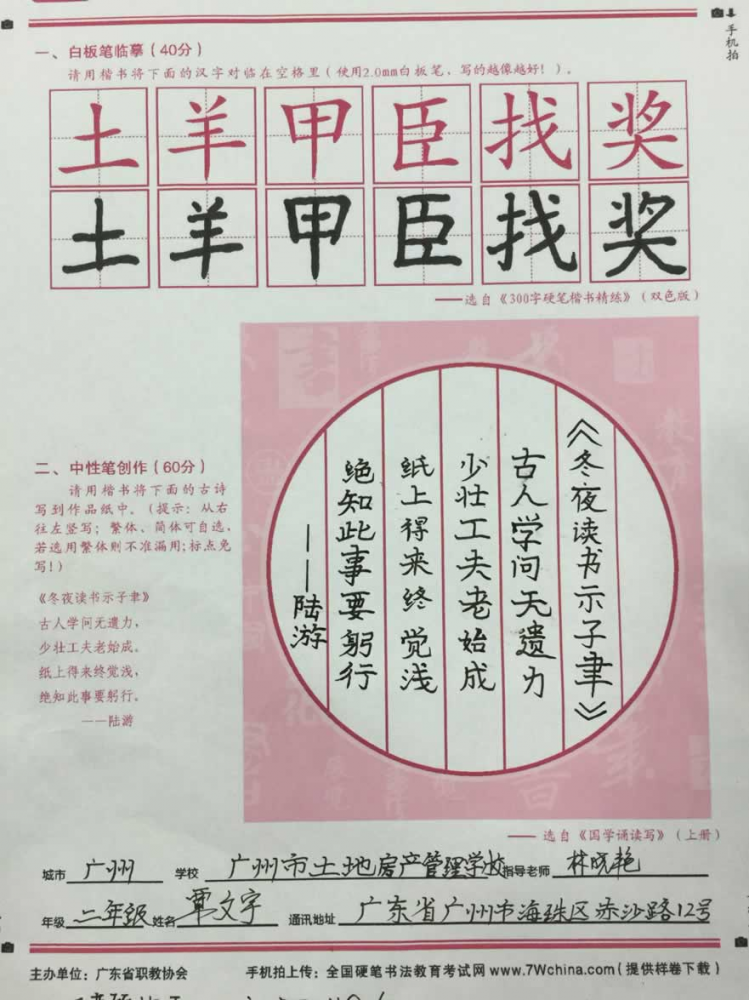 手机拍
一、白板笔临摹（40分）
请用楷书将下面的汉字对临在空格里（使用2.0mm白板笔，写的越像越好！）。
土羊甲臣找奖
土羊甲臣找奖
——选自《300字硬笔楷书精练》（双色版）
二、中性笔创作（60分）
请用楷书将下面的古诗
写到作品纸中。（提示：从右
往左竖写；繁体、简体可自选，
若选用繁体则不准漏用；标点免
写！）
《冬夜读书示子聿》
古人学问无遗力，
少壮工夫老始成。
纸上得来终觉浅，
绝知此事要躬行。
——陆游
《冬夜读书示子聿》
古人学问无遗力
少壮工夫老始成
纸上得来终觉浅
绝知此事要躬行
——陆游
——选自《国学诵读写》（上册）
城市 广州 学校 广州市土地房产管理学校 指导老师 林晓艳
年级 二年级 姓名 覃文宇 通讯地址 广东省广州市海珠区赤沙路12号
主办单位：广东省职教协会 手机拍上传：全国硬笔书法教育考试网 www.7Wchina.com（提供样卷下载）